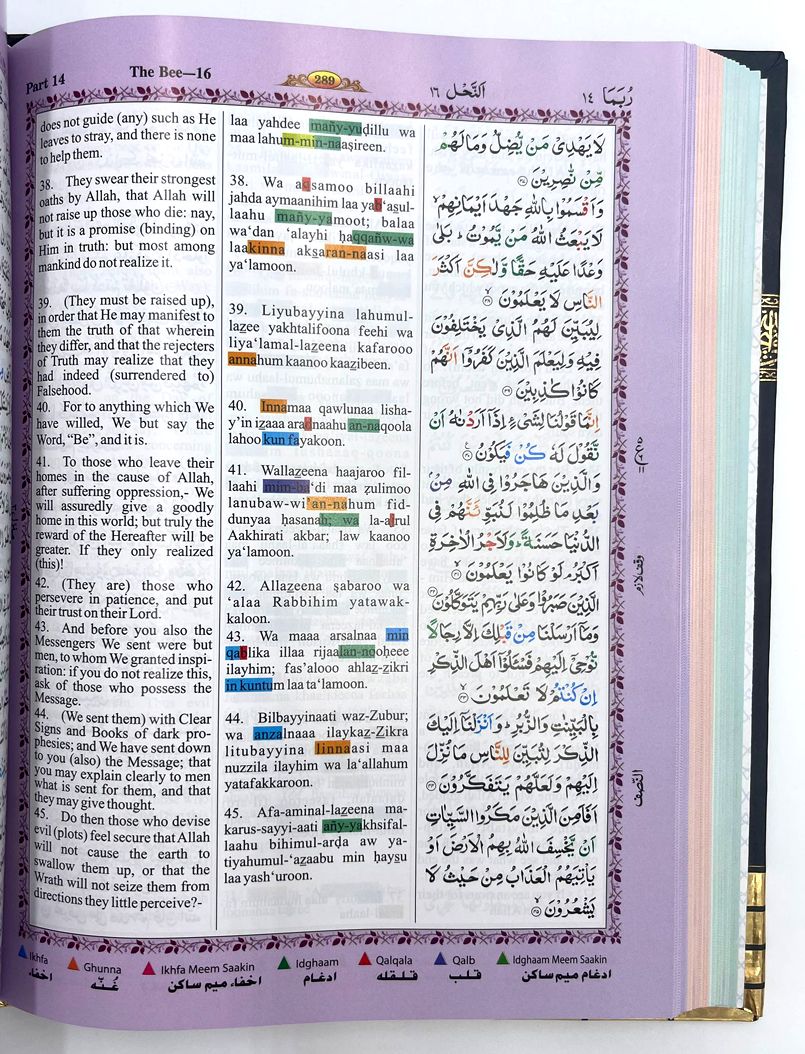 Part 14
The Bee—16
289
اَلنَّحْل ١٦
رُبَمَا ١٤
does not guide (any) such as He
leaves to stray, and there is none
to help them.
38. They swear their strongest
oaths by Allah, that Allah will
not raise up those who die: nay,
but it is a promise (binding) on
Him in truth: but most among
mankind do not realize it.
39. (They must be raised up),
in order that He may manifest to
them the truth of that wherein
they differ, and that the rejecters
of Truth may realize that they
had indeed (surrendered to)
Falsehood.
40. For to anything which We
have willed, We but say the
Word, “Be”, and it is.
41. To those who leave their
homes in the cause of Allah,
after suffering oppression,- We
will assuredly give a goodly
home in this world; but truly the
reward of the Hereafter will be
greater. If they only realized
(this)!
42. (They are) those who
persevere in patience, and put
their trust on their Lord.
43. And before you also the
Messengers We sent were but
men, to whom We granted inspi-
ration: if you do not realize this,
ask of those who possess the
Message.
44. (We sent them) with Clear
Signs and Books of dark pro-
phesies; and We have sent down
to you (also) the Message; that
you may explain clearly to men
what is sent for them, and that
they may give thought.
45. Do then those who devise
evil (plots) feel secure that Allah
will not cause the earth to
swallow them up, or that the
Wrath will not seize them from
directions they little perceive?-
laa yahdee mañy-yuḍillu wa
maa lahum-min-naaṣireen.
38. Wa aqsamoo billaahi
jahda aymaanihim laa yab‘aṣul-
laahu mañy-yamoot; balaa
wa‘dan ‘alayhi ḥaqqañw-wa
laakinna akṣaran-naasi laa
ya‘lamoon.
39. Liyubayyina lahumul-
lazee yakhtalifoona feehi wa
liya‘lamal-lazeena kafarooo
annahum kaanoo kaazibeen.
40. Innamaa qawlunaa lisha-
y’in izaaa aradnaahu an-naqoola
lahoo kun fayakoon.
41. Wallazeena haajaroo fil-
laahi mim-ba‘di maa zulimoo
lanubaw-wi’an-nahum fid-
dunyaa ḥasanah; wa la-ajrul
Aakhirati akbar; law kaanoo
ya‘lamoon.
42. Allazeena ṣabaroo wa
‘alaa Rabbihim yatawak-
kaloon.
43. Wa maaa arsalnaa min
qablika illaa rijaalan-nooḥeee
ilayhim; fas’alooo ahlaz-zikri
in kuntum laa ta‘lamoon.
44. Bilbayyinaati waz-Zubur;
wa anzalnaaa ilaykaz-Zikra
litubayyina linnaasi maa
nuzzila ilayhim wa la‘allahum
yatafakkaroon.
45. Afa-aminal-lazeena ma-
karus-sayyi-aati añy-yakhsifal-
laahu bihimul-arḍa aw ya-
tiyahumul-‘azaabu min ḥayṣu
laa yash‘uroon.
لَا يَهْدِىْ مَنْ يُّضِلُّ وَمَا لَهُمْ
مِّنْ نّٰصِرِيْنَ ۝٣٧
وَاَقْسَمُوْا بِاللّٰهِ جَهْدَ اَيْمَانِهِمْ ۙ
لَا يَبْعَثُ اللّٰهُ مَنْ يَّمُوْتُ ؕ بَلٰى
وَعْدًا عَلَيْهِ حَقًّا وَّلٰكِنَّ اَكْثَرَ
النَّاسِ لَا يَعْلَمُوْنَ ۝٣٨
لِيُبَيِّنَ لَهُمُ الَّذِىْ يَخْتَلِفُوْنَ
فِيْهِ وَلِيَعْلَمَ الَّذِيْنَ كَفَرُوْۤا اَنَّهُمْ
كَانُوْا كٰذِبِيْنَ ۝٣٩
اِنَّمَا قَوْلُنَا لِشَىْءٍ اِذَاۤ اَرَدْنٰهُ اَنْ
نَّقُوْلَ لَهٗ كُنْ فَيَكُوْنُ ۝٤٠
وَالَّذِيْنَ هَاجَرُوْا فِى اللّٰهِ مِنْۢ
بَعْدِ مَا ظُلِمُوْا لَنُبَوِّئَنَّهُمْ فِى
الدُّنْيَا حَسَنَةً ؕ وَلَاَجْرُ الْاٰخِرَةِ
اَكْبَرُ ۘ لَوْ كَانُوْا يَعْلَمُوْنَ ۝٤١
الَّذِيْنَ صَبَرُوْا وَعَلٰى رَبِّهِمْ يَتَوَكَّلُوْنَ ۝٤٢
وَمَاۤ اَرْسَلْنَا مِنْ قَبْلِكَ اِلَّا رِجَالًا
نُّوْحِىْۤ اِلَيْهِمْ فَسْـَٔلُوْۤا اَهْلَ الذِّكْرِ
اِنْ كُنْتُمْ لَا تَعْلَمُوْنَ ۝٤٣
بِالْبَيِّنٰتِ وَالزُّبُرِ ؕ وَاَنْزَلْنَاۤ اِلَيْكَ
الذِّكْرَ لِتُبَيِّنَ لِلنَّاسِ مَا نُزِّلَ
اِلَيْهِمْ وَلَعَلَّهُمْ يَتَفَكَّرُوْنَ ۝٤٤
اَفَاَمِنَ الَّذِيْنَ مَكَرُوا السَّيِّاٰتِ
اَنْ يَّخْسِفَ اللّٰهُ بِهِمُ الْاَرْضَ اَوْ
يَاْتِيَهُمُ الْعَذَابُ مِنْ حَيْثُ لَا
يَشْعُرُوْنَ ۝٤٥
وقف لازم
النّصف
Ikhfa
اخفاء
Ghunna
غُنّه
Ikhfa Meem Saakin
اخفاء ميم ساكن
Idghaam
ادغام
Qalqala
قلقله
Qalb
قلب
Idghaam Meem Saakin
ادغام ميم ساكن